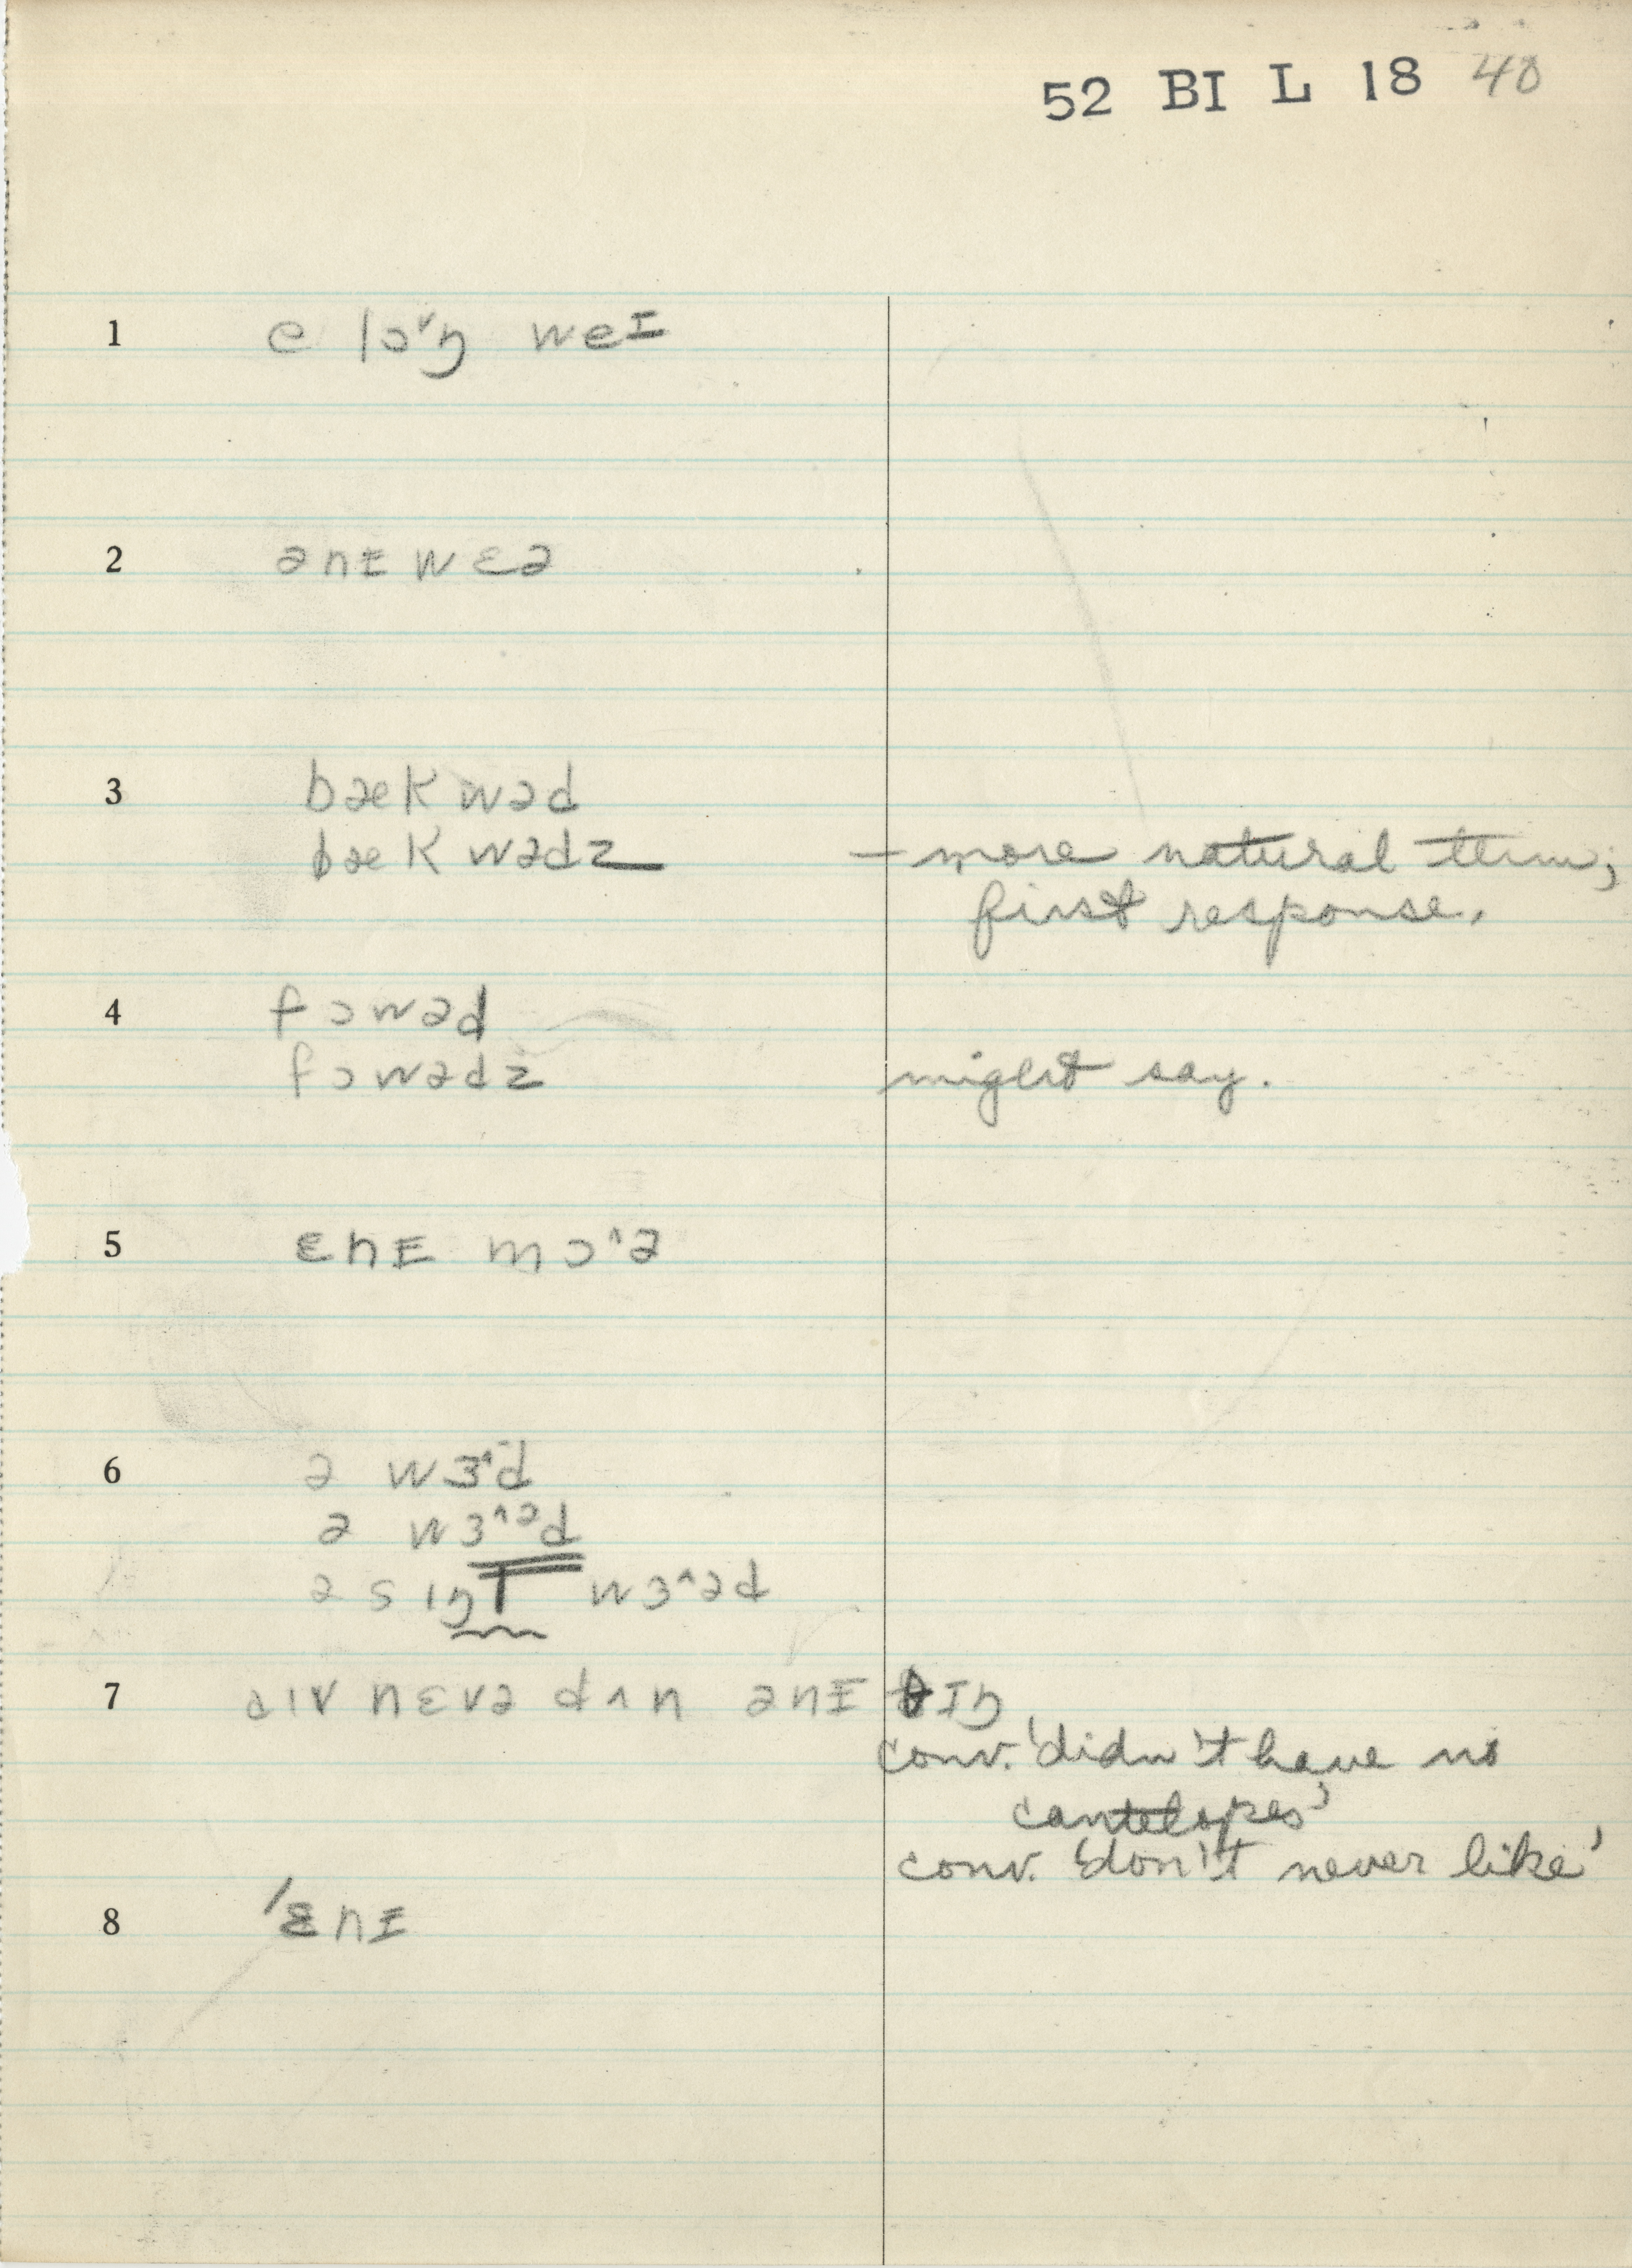 52 BI L 18 40
1 ə lɔ˅ŋ weɪ
2 ənɪ wɛə
3 bæk wəd
bæk wədz – more natural term;
first response.
4 fɔwəd
fɔwədz might say.
5 ɛnɪ mɔ^ə
6 ə wɜ^d
ə wɜ^əd
ə sɪŋl wɜ^əd
7 aɪv nɛvə dʌn ənɪ θɪŋ
conv. 'didn't have no
cantelopes'
conv. 'don't never like'
8 'ɛnɪ